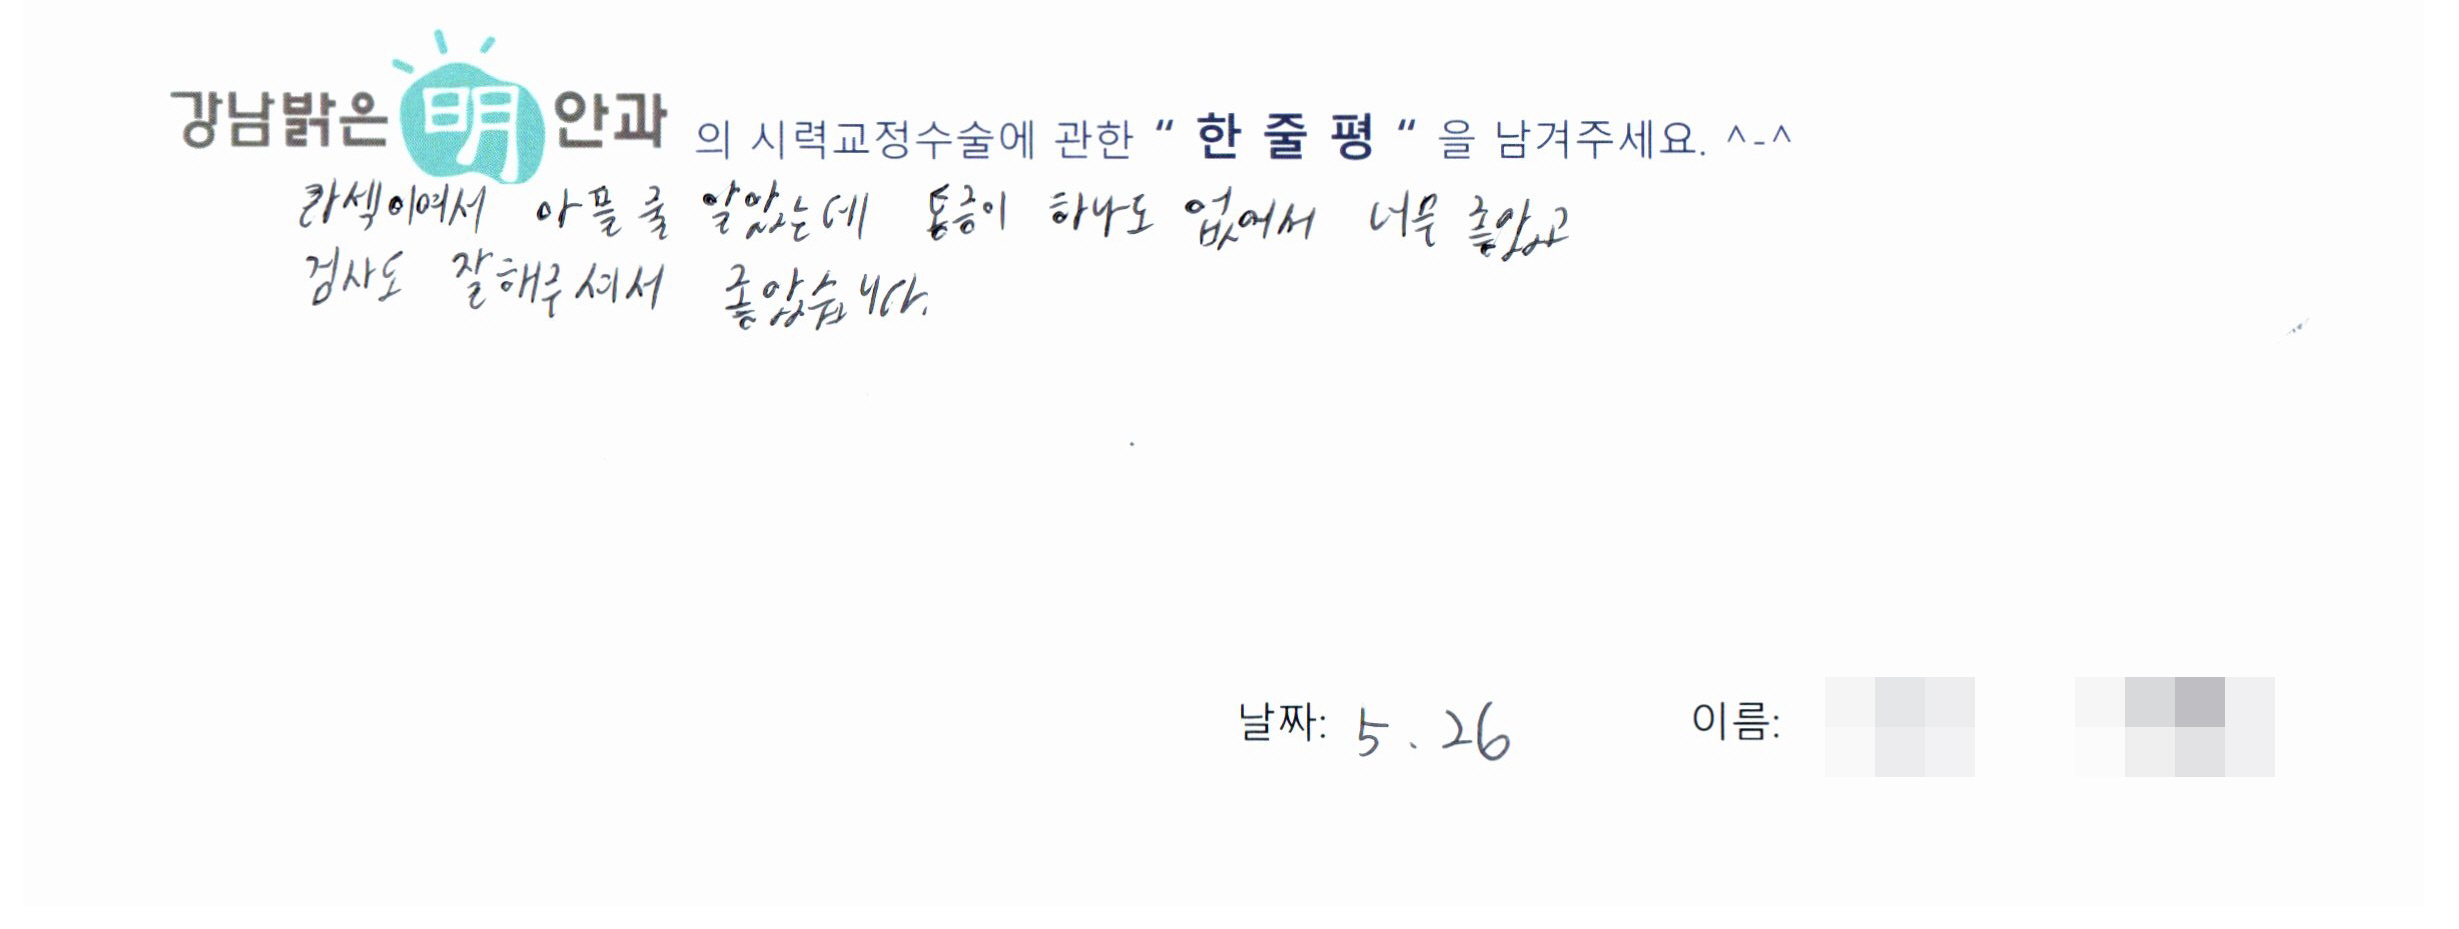 강남밝은 明 안과 의 시력교정수술에 관한 “ 한 줄 평 “ 을 남겨주세요. ^-^
라섹이여서 아플 줄 알았는데 통증이 하나도 없어서 너무 좋았고
검사도 잘해주셔서 좋았습니다.
날짜: 5.26 이름: